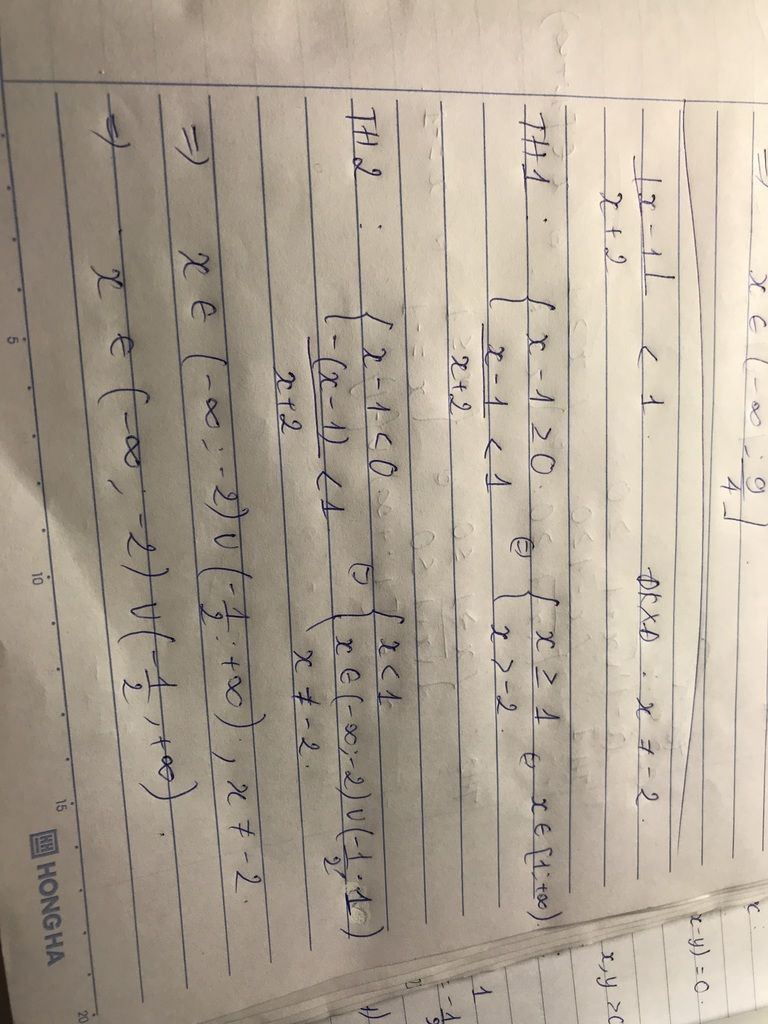 => x ∈ (-∞ ; 9/4]
|x-1|/x+2 < 1. ĐKXĐ : x ≠ -2.
TH1 : { x-1 ≥ 0. ⇔ { x ≥ 1 ⇔ x ∈ [1;+∞).
{ x-1/x+2 < 1 { x > -2.
TH2 : { x-1 < 0 ⇔ { x < 1
{ -(x-1)/x+2 < 1 { x ∈ (-∞;-2) ∪ (-1/2; 1)
x ≠ -2.
=> x ∈ (-∞ ; -2) ∪ (-1/2 ; +∞), x ≠ -2.
=> x ∈ (-∞ ; -2) ∪ (-1/2 ; +∞)
5 10 15 20
HONG HA
x-y) = 0.
x,y > 0